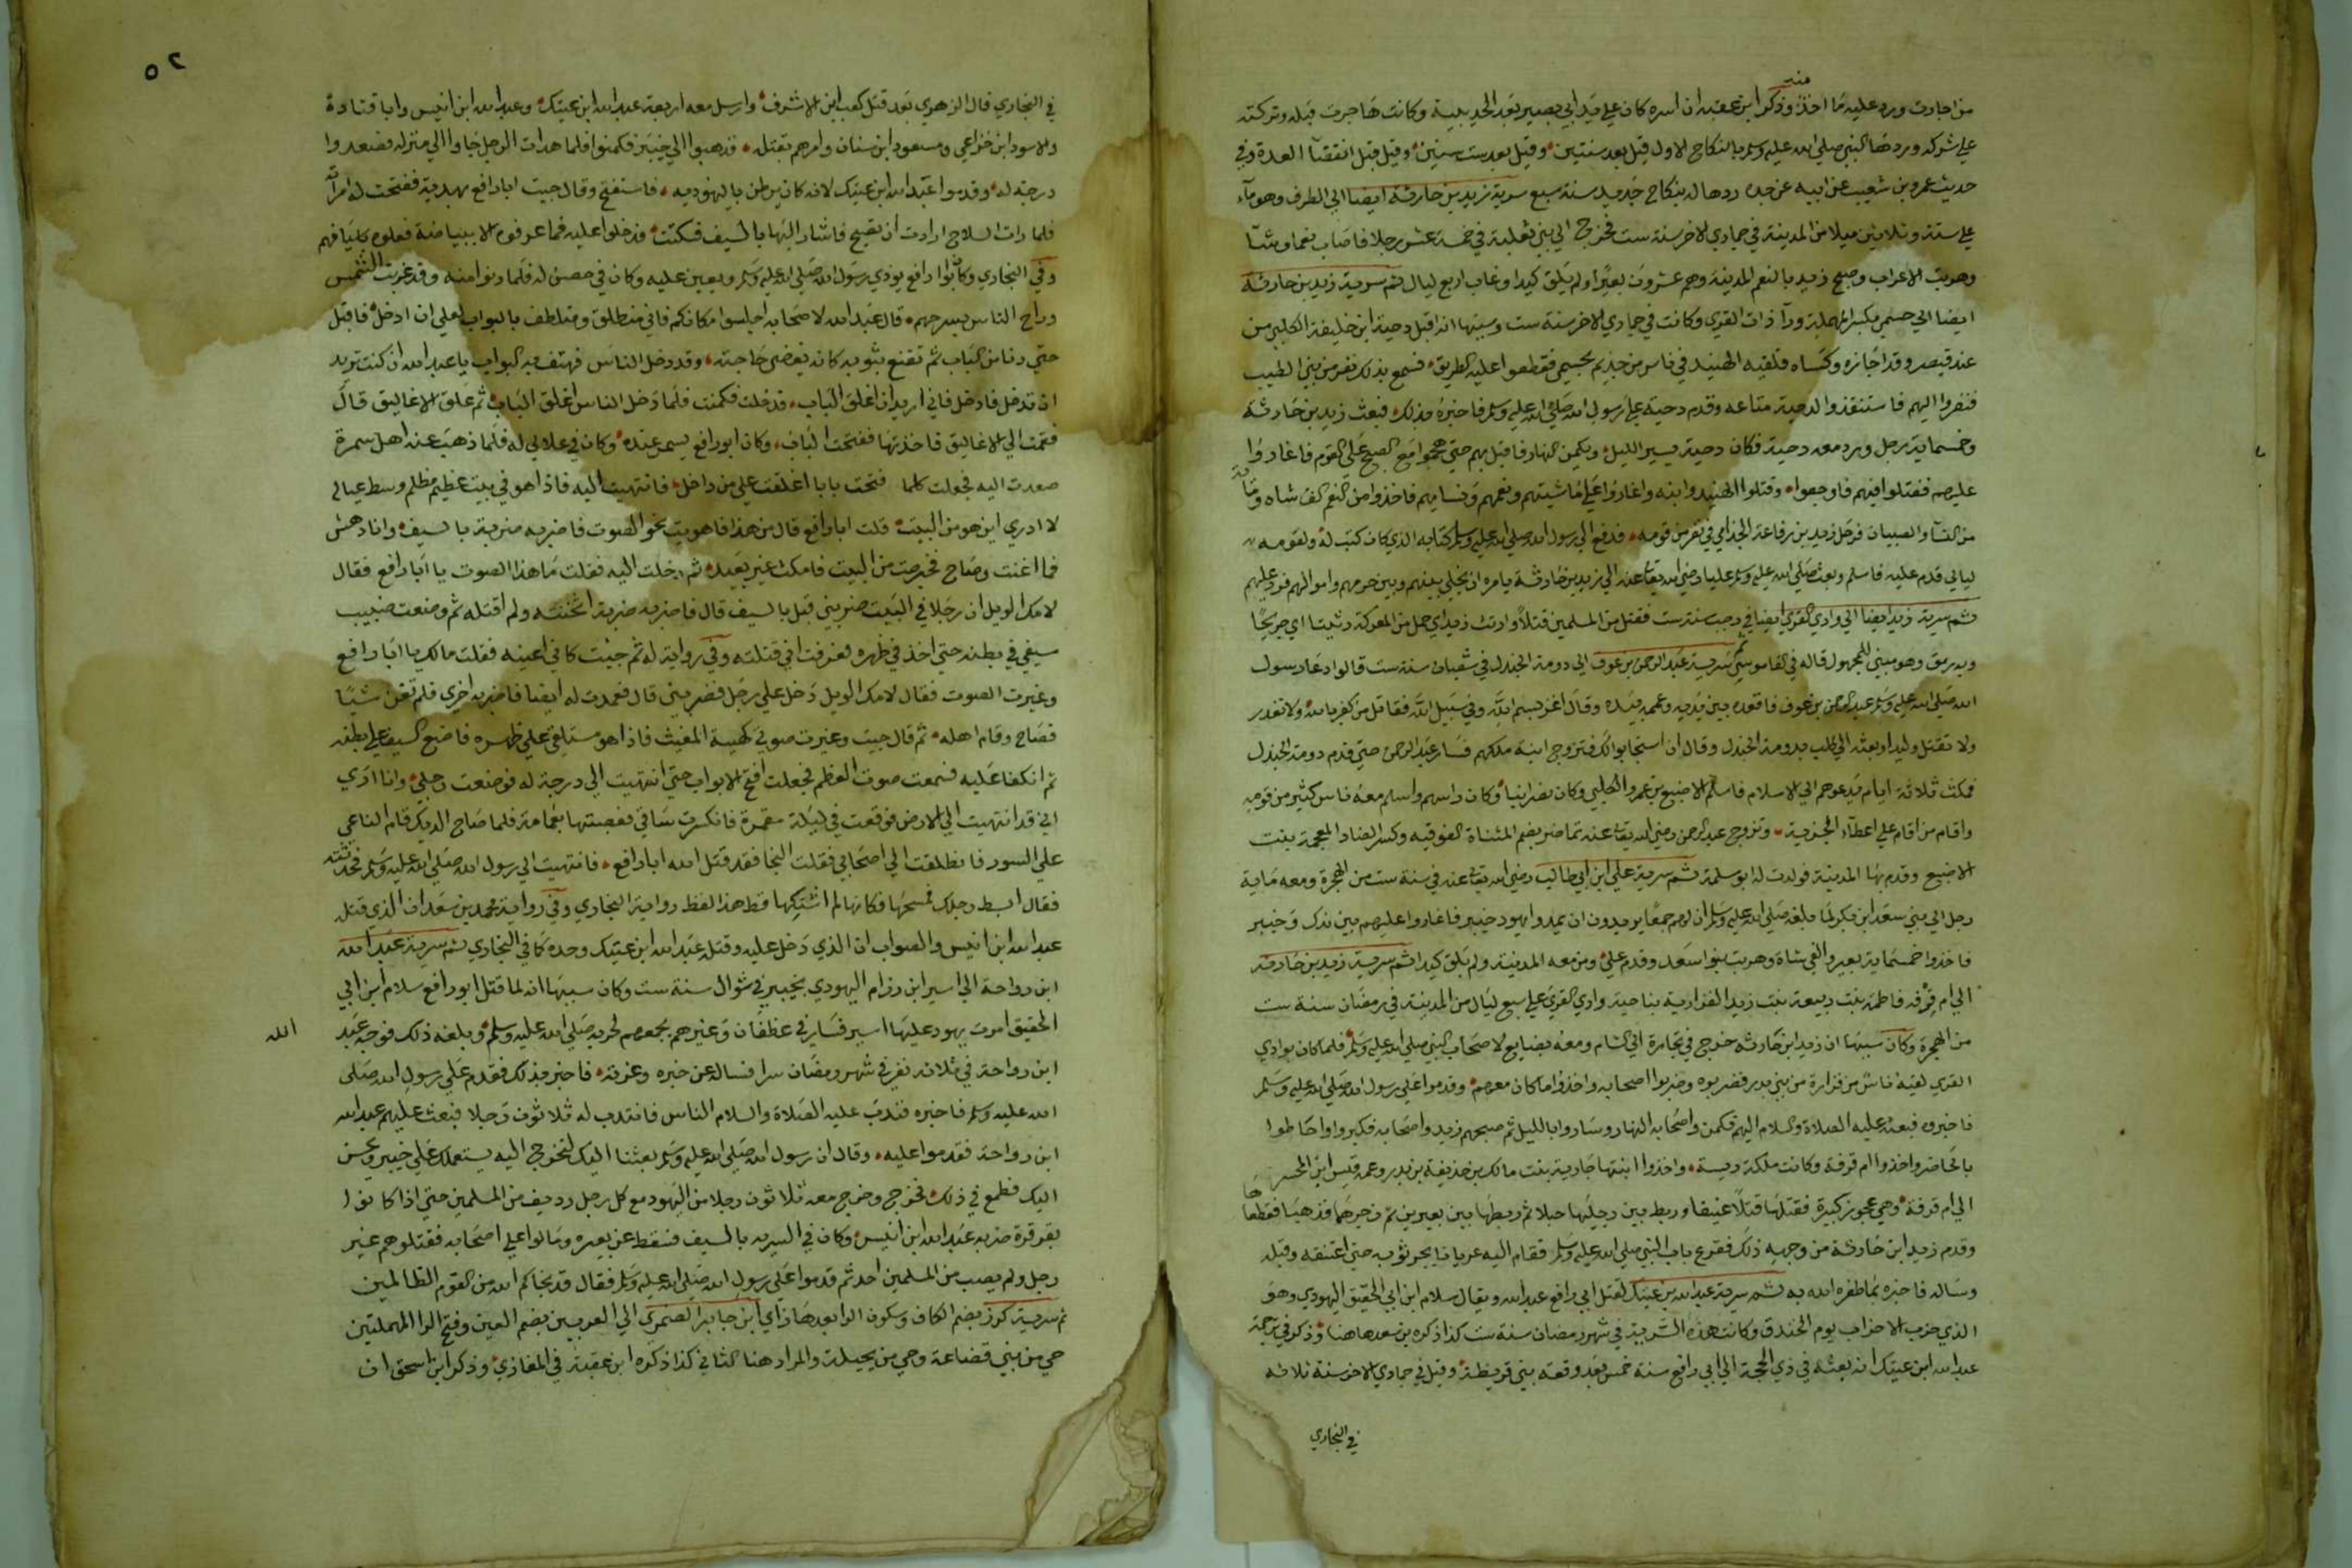 منه
من اجارت ورد عليه ما اخذ وذكر ابن عقبه ان اسره كان علي يد ابي بصير بعد الحديبية وكانت هاجرت قبله وتركته
علي شركه وردها النبي صلي الله عليه وسلم بالنكاح الاول قيل بعد سنتين وقيل بعد ست سنين وقيل قبل انقضآ العدة وفي
حديث عمرو بن شعيب عن ابيه عن جده ردها له بنكاح جديد سنة سبع سرية زيد بن حارثة ايضا الي الطرف وهو مآء
علي ستة وثلاثين ميلا من المدينة في جمادي الاخر سنة ست فخرج الي بني ثعلبة في خمسة عشر رجلا فاصاب نعما وشآ
وهربت الاعراب وصبح زيد بالنعم المدينة وهم عشرون بعيرا ولم يلق كيدا وغاب اربع ليال ثم سرية زيد بن حارثة
ايضا الي حسمي بكسر المهملة ورآ ذات القري وكانت في جمادي الاخر سنة ست وسببها انه اقبل دحية ابن خليفة الكلبي من
عند قيصر وقد اجازه وكساه فلقيه الهنيد في ناس من جذيم بحسمي فقطعوا عليه الطريق فسمع بذلك نفر من بني الطيب
فنفروا اليهم فاستنقذوا لدحية متاعه وقدم دحية علي رسول الله صلي الله عليه وسلم فاخبره بذلك فبعث زيد بن حارثة
وخمسماية رجل ورد معه دحية فكان دحية يسير الليل ويكمن النهار فاقبل بهم حتي هجموا مع الصبح علي القوم فاغاروا
عليهم فقتلوا فيهم فاوجعوا وقتلوا الهنيد وابنه واغاروا علي ماشيتهم ونعمهم ونسايهم فاخذوا من النعم الف شاه وماية
من النسآ والصبيان فرحل زيد بن رفاعة الجذامي في نفر من قومه فدفع الي رسول الله صلي الله عليه وسلم كتابه الذي كان كتب له ولقومه
ليالي قدم عليه فاسلم وبعث صلي الله عليه وسلم عليا رضي الله تعالى عنه الي زيد بن حارثة يامره ان يخلي بينهم وبين حرمهم واموالهم فرد عليهم
ثم سرية زيد ايضا الي وادي القري ايضا في رجب سنة ست فقتل من المسلمين قتلاً وارتث زيد اي حمل من المعركة رثيثا اي جريحا
وبه رمق وهو مبني للمجهول قاله في القاموس ثم سرية عبد الرحمن بن عوف الي دومة الجندل في شعبان سنة ست قالوا دعا رسول
الله صلي الله عليه وسلم عبد الرحمن بن عوف فاقعده بين يديه وعممه بيده وقال اغز بسم الله وفي سبيل الله فقاتل من كفر بالله ولا تغدر
ولا تقتل وليدا وبعثه الي كلب بدومة الجندل وقال ان استجابوا لك فتزوج ابنة ملكهم فسار عبد الرحمن حتي قدم دومة الجندل
فمكث ثلاثة ايام يدعوهم الي الاسلام فاسلم الاصبع بن عمرو الكلبي وكان نصرانيا وكان راسهم واسلم معه ناس كثير من قومه
واقام من اقام علي اعطآء الجزية وتزوج عبد الرحمن رضي الله تعالى عنه تماضر بضم المثناة الفوقيه وكسر الضاد المعجمة بنت
الاصبع وقدم بها المدينة فولدت له ابو سلمة ثم سرية علي ابن ابي طالب رضي الله تعالى عنه في سنة ست من الهجرة ومعه ماية
رجل الي بني سعد ابن بكر لما بلغه صلي الله عليه وسلم ان لهم جمعا يريدون ان يمدوا يهود خيبر فاغاروا عليهم بين فدك وخيبر
فاخذوا خمسماية بعير والفي شاة وهربت بنو سعد وقدم علي ومن معه المدينة ولم يلق كيدا ثم سرية زيد بن حارثة
الي ام قرفة فاطمة بنت ربيعة بنت زيد الفزارية بناحية وادي القري علي سبع ليال من المدينة في رمضان سنة ست
من الهجرة وكان سببها ان زيد ابن حارثه خرج في تجارة الي الشام ومعه بضايع لاصحاب النبي صلي الله عليه وسلم فلما كان بوادي
القري لقيه ناس من فزارة من بني بدر فضربوه وضربوا اصحابه واخذوا ما كان معهم وقدموا علي رسول الله صلي الله عليه وسلم
فاخبره فبعثه عليه الصلاة والسلام اليهم فكمن واصحابه النهار وساروا بالليل ثم صبحهم زيد واصحابه فكبروا واحاطوا
بالحاضر واخذوا ام قرفة وكانت ملكة رييسة واخذوا ابنتها جارية بنت مالك بن حذيفة بن بدر وعمد قيس ابن المحسر
الي ام قرفة وهي عجوز كبيرة فقتلها قتلاً عنيفا وربط بين رجليها حبلا ثم ربطها بين بعيرين ثم زجرهما فذهبا فقطعاها
وقدم زيد ابن حارثة من وجهه ذلك فقرع باب النبي صلي الله عليه وسلم فقام اليه عريانا يجر ثوبه حتي اعتنقه وقبله
وساله فاخبره بما ظفره الله به ثم سرية عبد الله بن عتيك لقتل ابي رافع عبد الله ويقال سلام ابن ابي الحقيق اليهودي وهو
الذي حزب الاحزاب يوم الخندق وكانت هذه السرية في شهر رمضان سنة ست كذا ذكره بن سعد هاهنا وذكر في ترجمة
عبد الله ابن عتيك انه بعثه في ذي الحجة الي ابي رافع سنة خمس بعد وقعة بني قريظة وقيل في جمادي الاخر سنة ثلاثه
في البخاري
٥٢
في البخاري قال الزهري بعد قتل كعب ابن الاشرف وارسل معه اربعة عبد الله ابن عتيك وعبد الله ابن انيس وابا قتادة
والاسود ابن خزاعي ومسعود ابن سنان وامرهم بقتله فذهبوا الي خيبر فكمنوا فلما هدات الرجل جاوا الي منزله فصعدوا
درجة له وقدموا عبد الله ابن عتيك لانه كان يرطن باليهوديه فاستفتح وقال جيت ابا رافع بهدية ففتحت له امراته
فلما رات السلاح ارادت ان تصيح فاشار اليها بالسيف فسكتت فدخلوا عليه فما عرفوه الا ببياضة فعلوه باسيافهم
وفي البخاري وكان ابو رافع يوذي رسول الله صلي الله عليه وسلم ويعين عليه وكان في حصن له فلما دنوا منه وقد غربت الشمس
وراح الناس بسرحهم قال عبد الله لاصحابه اجلسوا مكانكم فاني منطلق ومتلطف بالبواب لعلي ان ادخل فاقبل
حتي دنا من الباب ثم تقنع بثوبه كانه يقضي حاجته وقد دخل الناس فهتف به البواب يا عبد الله ان كنت تريد
ان تدخل فادخل فاني اريد ان اغلق الباب فدخلت فكمنت فلما دخل الناس اغلق الباب ثم علق الاغاليق قال
فقمت الي الاغاليق فاخذتها ففتحت الباب وكان ابو رافع يسمر عنده وكان في علالي له فلما ذهب عنه اهل سمرة
صعدت اليه فجعلت كلما فتحت بابا اغلقت علي من داخل فانتهيت اليه فاذا هو في بيت عظيم مظلم وسط عياله
لا ادري اين هو من البيت قلت ابا رافع قال من هذا فاهويت نحو الصوت فاضربه ضربة بالسيف وانا دهش
فما اغنت وصاح فخرجت من البيت فامكث غير بعيد ثم دخلت اليه فقلت ما هذا الصوت يا ابا رافع فقال
لامك الويل ان رجلا في البيت ضربني قبل بالسيف قال فاضربه ضربة اثخنته ولم اقتله ثم وضعت ضبيب
سيفي في بطنه حتي اخذ في ظهره فعرفت اني قتلته وفي رواية له ثم جيت كاني اعينه فقلت مالك يا ابا رافع
وغيرت الصوت فقال لامك الويل دخل علي رجل فضربني قال فعمدت له ايضا فاضربه اخري فلم تغن شيا
فصاح وقام اهله ثم قال جيت وغيرت صوتي كهيية المغيث فاذا هو مستلقي علي ظهره فاضع السيف علي بطنه
ثم انكفا عليه فسمعت صوت العظم فجعلت افتح الابواب حتي انتهيت الي درجة له فوضعت رجلي وانا اري
اني قد انتهيت الي الارض فوقعت في ليلة مقمرة فانكسرت ساقي فعصبتها بعمامة فلما صاح الديك قام الناعي
علي السور فانطلقت الي اصحابي فقلت النجا فقد قتل الله ابا رافع فانتهيت الي رسول الله صلي الله عليه وسلم فحدثته
فقال ابسط رجلك فمسحها فكانها لم اشتكها قط هذا لفظ رواية البخاري وفي رواية محمد بن سعد ان الذي قتله
عبد الله ابن انيس والصواب ان الذي دخل عليه وقتله عبد الله ابن عتيك وحده كما في البخاري ثم سرية عبد الله
ابن رواحة الي اسير ابن رزام اليهودي بخيبر في شوال سنة ست وكان سببها انه لما قتل ابو رافع سلام ابن ابي
الحقيق امرت يهود عليها اسير فسار في غطفان وغيرهم يجمعهم لحربه صلي الله عليه وسلم وبلغه ذلك فوجه عبد
الله
ابن رواحة في ثلاثة نفر في شهر رمضان سرا فسال عن خبره وغرته فاخبر بذلك فقدم علي رسول الله صلي
الله عليه وسلم فاخبره فندب عليه الصلاة والسلام الناس فانتدب له ثلاثون رجلا فبعث عليهم عبد الله
ابن رواحة فقدموا عليه وقال ان رسول الله صلي الله عليه وسلم بعثنا اليك لتخرج اليه يستعملك علي خيبر ويحسن
اليك فطمع في ذلك فخرج وخرج معه ثلاثون رجلا من اليهود مع كل رجل رديف من المسلمين حتي اذا كانوا
بقرقرة ضربه عبد الله ابن انيس وكان في السريه بالسيف فسقط عن بعيره ومالوا علي اصحابه فقتلوهم غير
رجل ولم يصب من المسلمين احد ثم قدموا علي رسول الله صلي الله عليه وسلم فقال قد نجاكم الله من القوم الظالمين
ثم سرية كرز بضم الكاف وسكون الرا بعدها زاي ابن جابر الضمري الي العرنيين بضم العين وفتح الرا المهملتين
حي من بني قضاعة وحي من بجيلة والمراد هنا الثاني كذا ذكره ابن عقبة في المغازي وذكر ابن اسحق ان